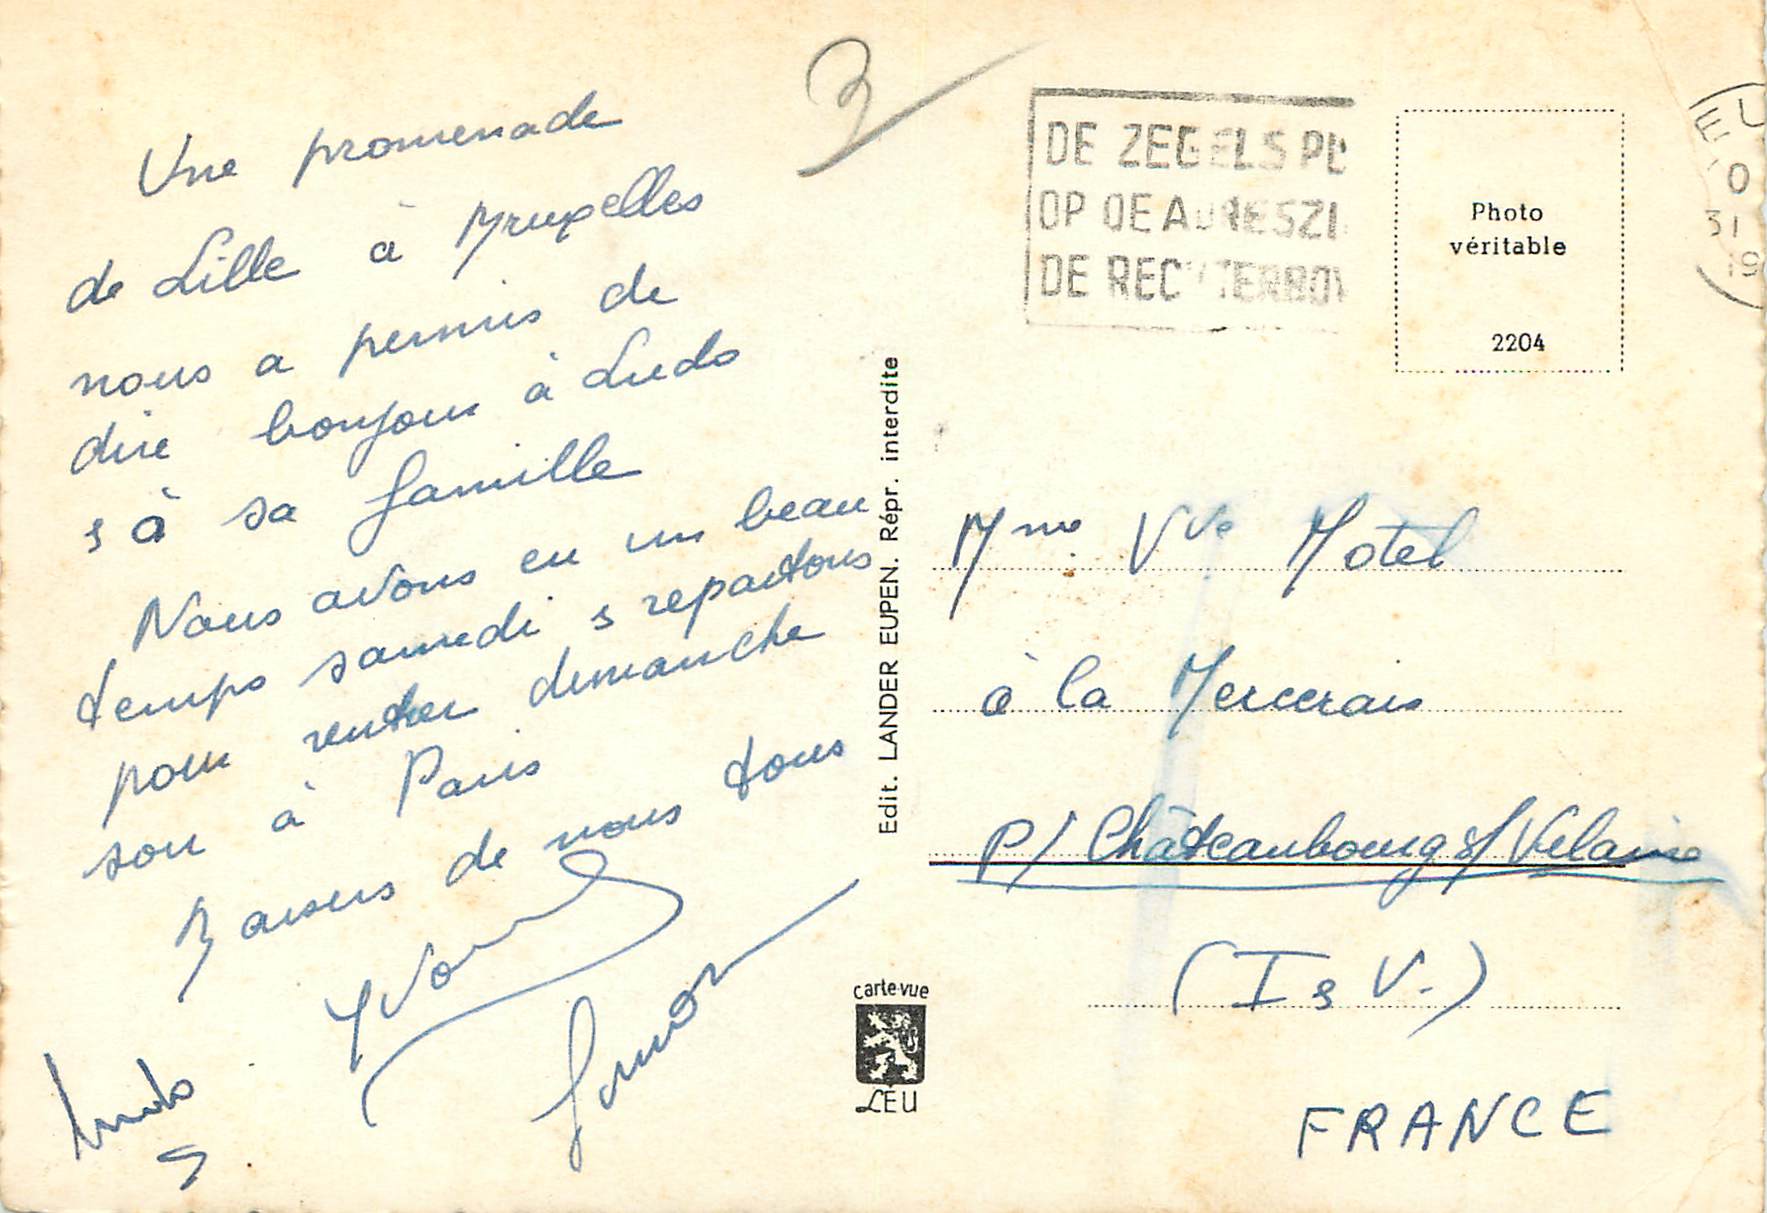 3
Une promenade
de Lille à Bruxelles
nous a permis de
dire bonjour à Ludo
& à sa famille
Nous avons eu un beau
temps samedi & repartons
pour rentrer dimanche
soir à Paris
Baisers de nous tous
Yvonne
Ludo
DE ZEGELS
OP DE ADRESZI
DE REC TERBOV
Photo
véritable
2204
EU
0
31
19
Edit. LANDER EUPEN. Répr. interdite
Mme Vve Motel
à la Mercerais
P/ Châteaubourg s/ Vilaine
(I & V.)
FRANCE
carte-vue
LEU